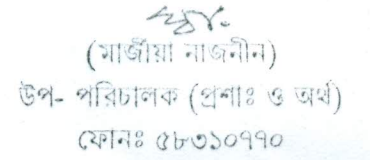 (মার্জীয়া নাজনীন)
উপ- পরিচালক (প্রশাঃ ও অর্থ)
ফোনঃ ৫৮৩১০৭৭০